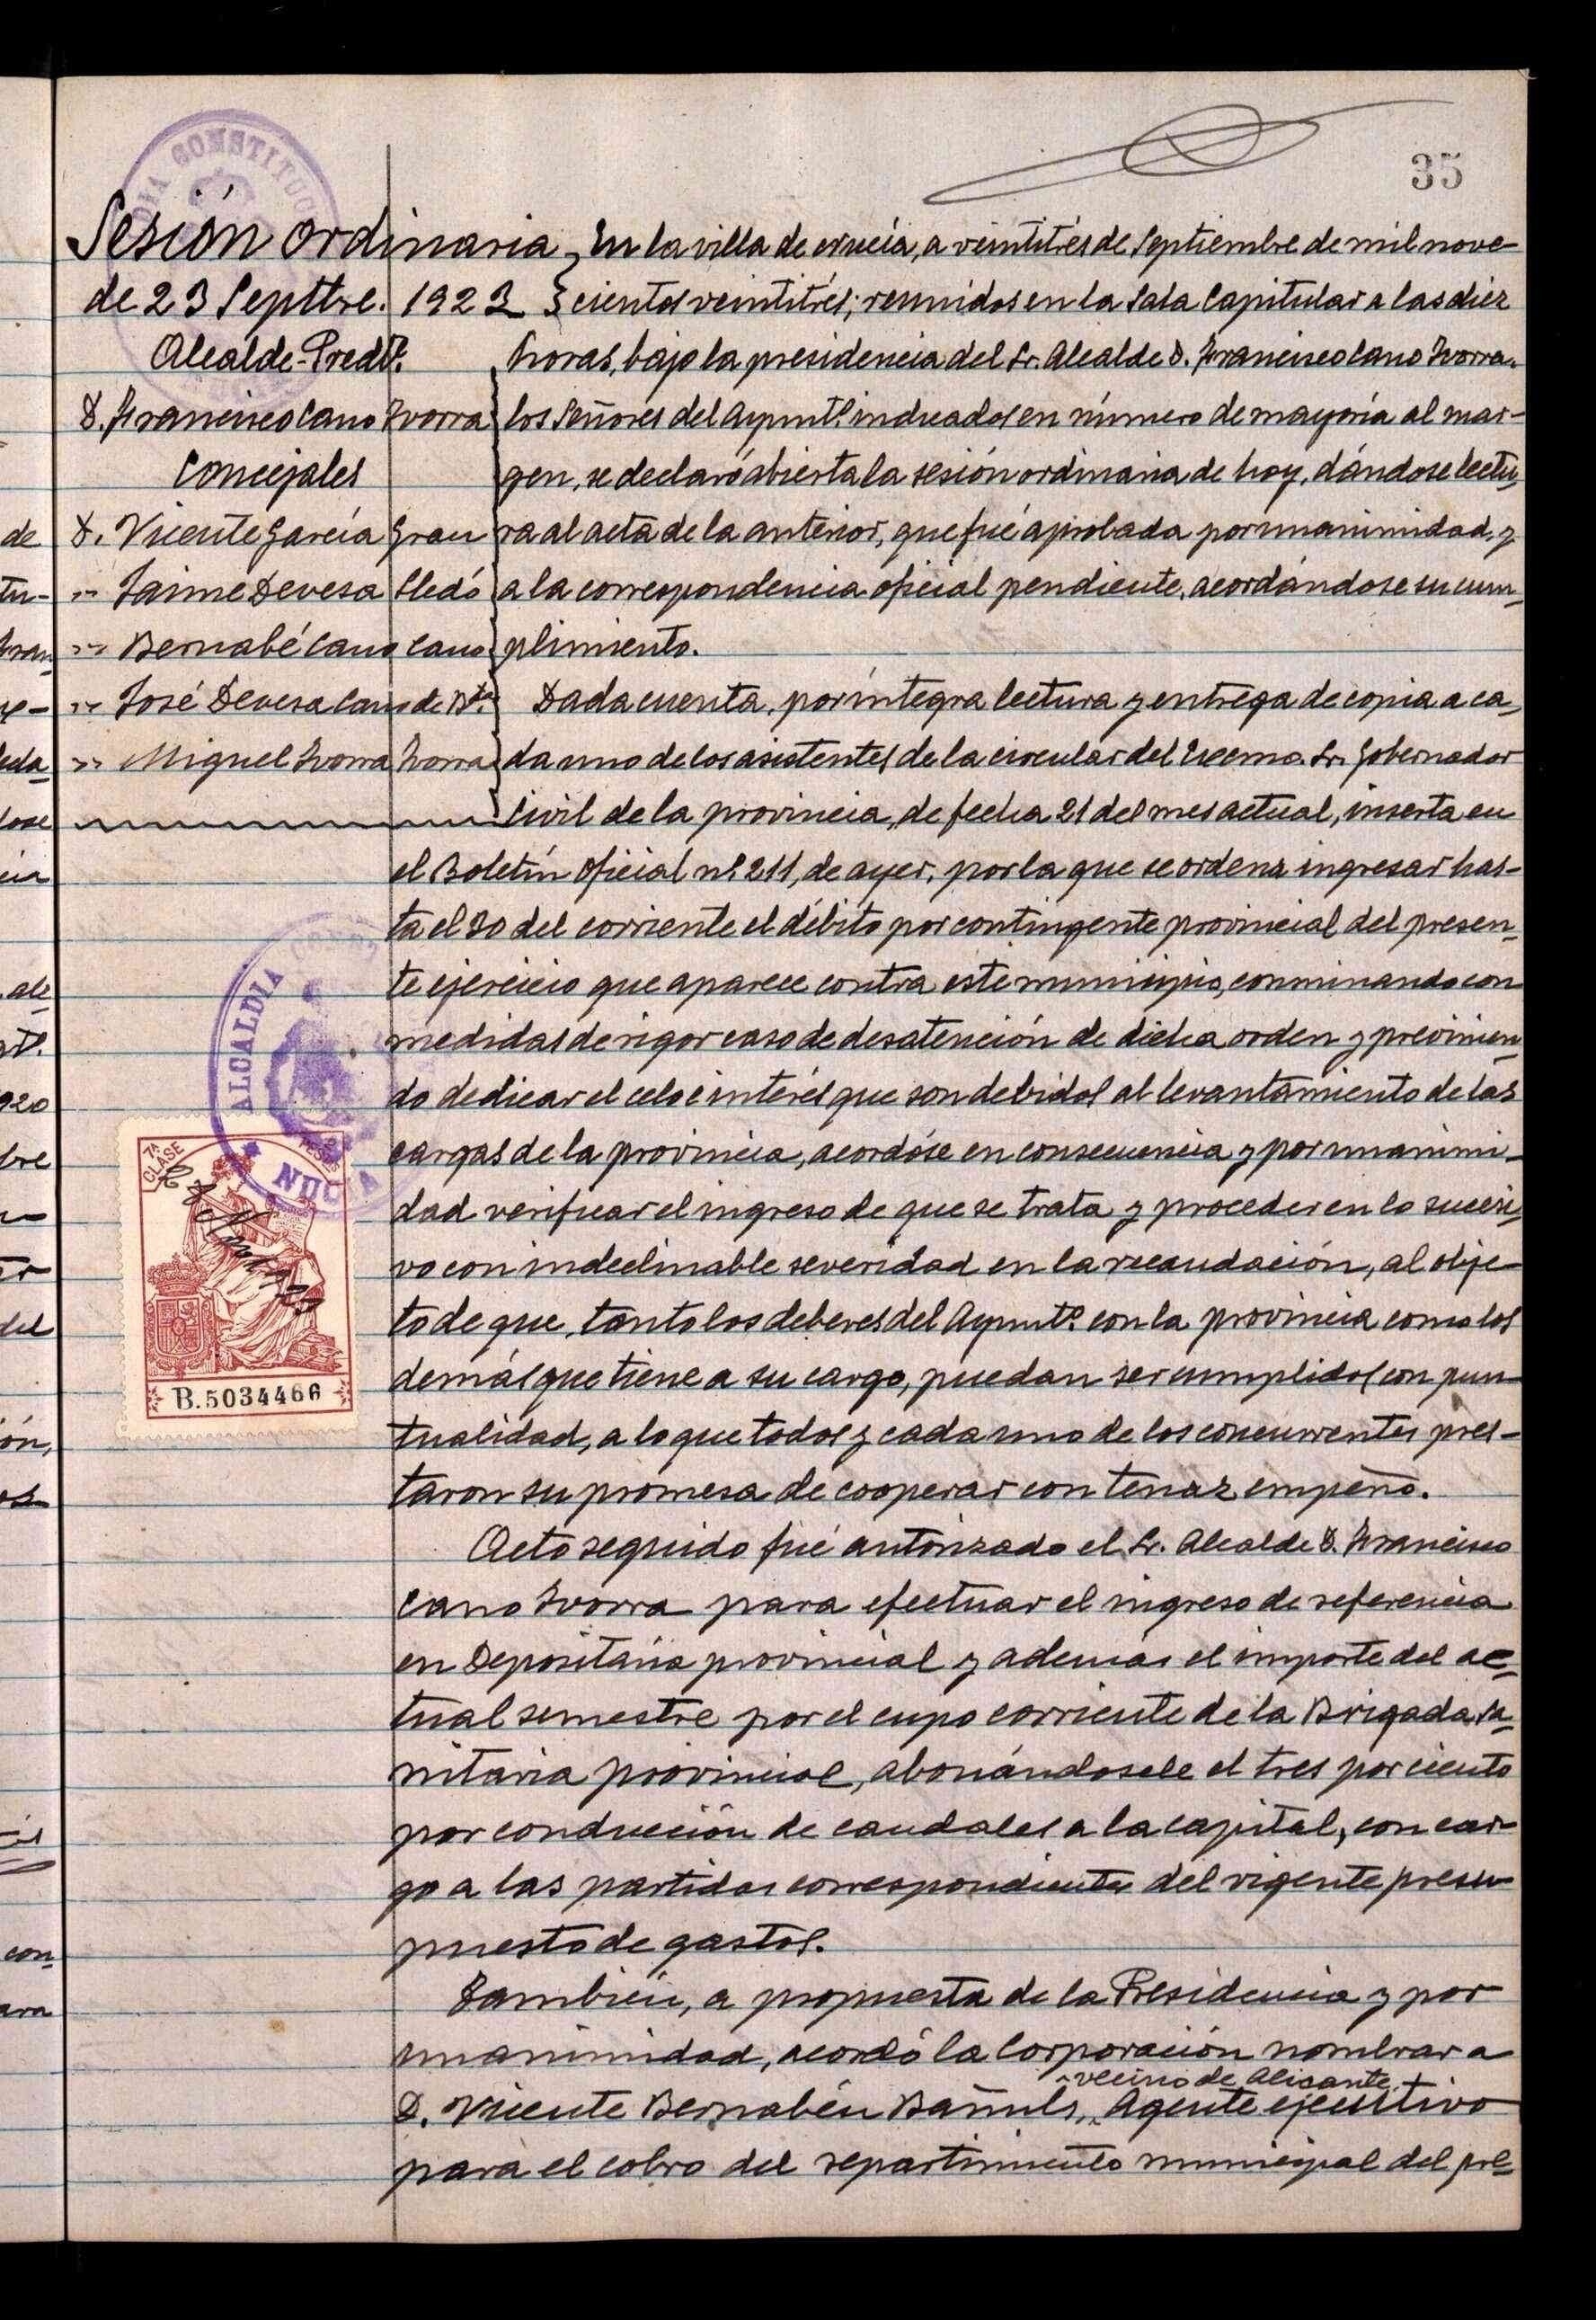 35
Sesión ordinaria
de 23 Septbre. 1923
Alcalde-Presdte.
D. Francisco Cano Ivorra
Concejales
D. Vicente García Grau
" Jaime Devesa Lledó
" Bernabé Cano Cano
" José Devesa Cano de Bta.
" Miguel Ivorra Ivorra
En la villa de Nucía, a veintitrés de Septiembre de mil nove-
cientos veintitrés; reunidos en la Sala Capitular a las diez
horas, bajo la presidencia del Sr. Alcalde D. Francisco Cano Ivorra,
los Señores del Ayuntº. indicados en número de mayoría al mar-
gen, se declaró abierta la sesión ordinaria de hoy, dándose lectu-
ra al acta de la anterior, que fué aprobada por unanimidad, y
a la correspondencia oficial pendiente, acordándose su cum-
plimiento.
Dada cuenta, por íntegra lectura y entrega de copia a ca-
da uno de los asistentes de la circular del Excmo. Sr. Gobernador
Civil de la provincia, de fecha 21 del mes actual, inserta en
el Boletín Oficial nº. 211, de ayer, por la que se ordena ingresar has-
ta el 30 del corriente el débito por contingente provincial del presen-
te ejercicio que aparece contra este municipio, conminando con
medidas de rigor caso de desatención de dicha orden y previnien-
do dedicar el celo e interés que son debidos al levantamiento de las
cargas de la provincia, acordóse en consecuencia y por unanimi-
dad verificar el ingreso de que se trata y proceder en lo sucesi-
vo con indeclinable severidad en la recaudación, al obje-
to de que, tanto los deberes del Ayuntº. con la provincia como los
demás que tiene a su cargo, puedan ser cumplidos con pun-
tualidad, a lo que todos y cada uno de los concurrentes pres-
taron su promesa de cooperar con tenaz empeño.
Acto seguido fué autorizado el Sr. Alcalde D. Francisco
Cano Ivorra para efectuar el ingreso de referencia
en Depositaría provincial y además el importe del ac-
tual semestre por el cupo corriente de la Brigada sa-
nitaria provincial, abonándosele el tres por ciento
por conducción de caudales a la capital, con car-
go a las partidas correspondientes del vigente presu-
puesto de gastos.
También, a propuesta de la Presidencia y por
unanimidad, acordó la Corporación nombrar a
vecino de Alicante,
D. Vicente Bernabéu Bañuls, Agente ejecutivo
para el cobro del repartimiento municipal del pre-
ALCALDIA
NUCIA
CONSTITUCIO
7ª CLASE
B.5034466
de
920
del
con